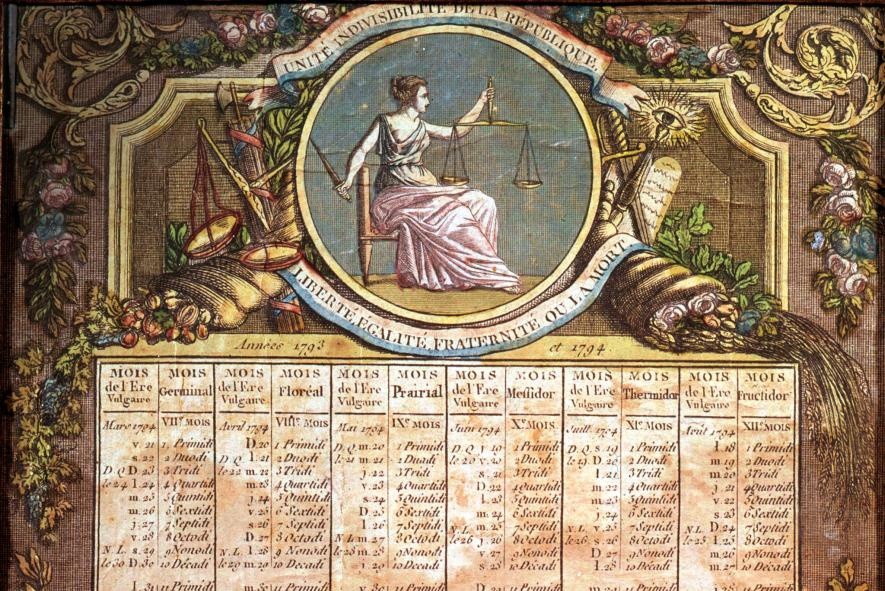 UNITÉ INDIVISIBILITÉ DE LA RÉPUBLIQUE.
LIBERTÉ ÉGALITÉ FRATERNITÉ OU LA MORT
Années 1793 et 1794.
MOIS MOIS MOIS MOIS MOIS MOIS MOIS MOIS MOIS MOIS MOIS MOIS
de l'Ere Germinal de l'Ere Floréal de l'Ere Prairial de l'Ere Messidor de l'Ere Thermidor de l'Ere Fructidor
Vulgaire Vulgaire Vulgaire Vulgaire Vulgaire Vulgaire
Mars 1794 VII.e MOIS Avril 1794 VIII.e MOIS Mai 1794 IX.e MOIS Juin 1794 X.e MOIS Juill. 1794 XI.e MOIS Août 1794 XII.e MOIS
v. 21 1 Primidi D. 20 1 Primidi D.Q. m. 20 1 Primidi D.Q. j. 19 1 Primidi D.Q. s. 19 1 Primidi l. 18 1 Primidi
s. 22 2 Duodi D.Q. l. 21 2 Duodi m. 21 2 Duodi v. 20 2 Duodi le 19. D. 20 2 Duodi m. 19 2 Duodi
D.Q. D. 23 3 Tridi le 22 m. 22 3 Tridi j. 22 3 Tridi s. 21 3 Tridi l. 21 3 Tridi m. 20 3 Tridi
le 24 l. 24 4 Quartidi m. 23 4 Quartidi v. 23 4 Quartidi D. 22 4 Quartidi m. 22 4 Quartidi j. 21 4 Quartidi
m. 25 5 Quintidi j. 24 5 Quintidi s. 24 5 Quintidi l. 23 5 Quintidi m. 23 5 Quintidi v. 22 5 Quintidi
m. 26 6 Sextidi v. 25 6 Sextidi D. 25 6 Sextidi m. 24 6 Sextidi j. 24 6 Sextidi s. 23 6 Sextidi
j. 27 7 Septidi s. 26 7 Septidi l. 26 7 Septidi N.L. m. 25 7 Septidi N.L. v. 25 7 Septidi N.L. D. 24 7 Septidi
v. 28 8 Octodi D. 27 8 Octodi N.L. m. 27 8 Octodi le 26 j. 26 8 Octodi le 26. s. 26 8 Octodi le 25 l. 25 8 Octodi
N.L. s. 29 9 Nonodi N.L. l. 28 9 Nonodi le 28 m. 28 9 Nonodi v. 27 9 Nonodi D. 27 9 Nonodi m. 26 9 Nonodi
le 30 D. 30 10 Décadi le 29 m. 29 10 Décadi j. 29 10 Décadi s. 28 10 Décadi l. 28 10 Décadi m. 27 10 Décadi